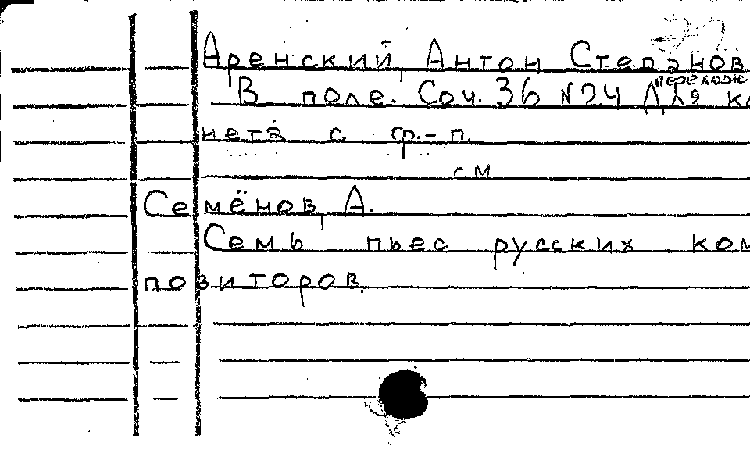 Аренский, Антон Степанов
перелож
В поле. Соч. 36 №24 Для кл
нета с ф.-п.
см
Семёнов, А.
Семь пьес русских ком
позиторов.